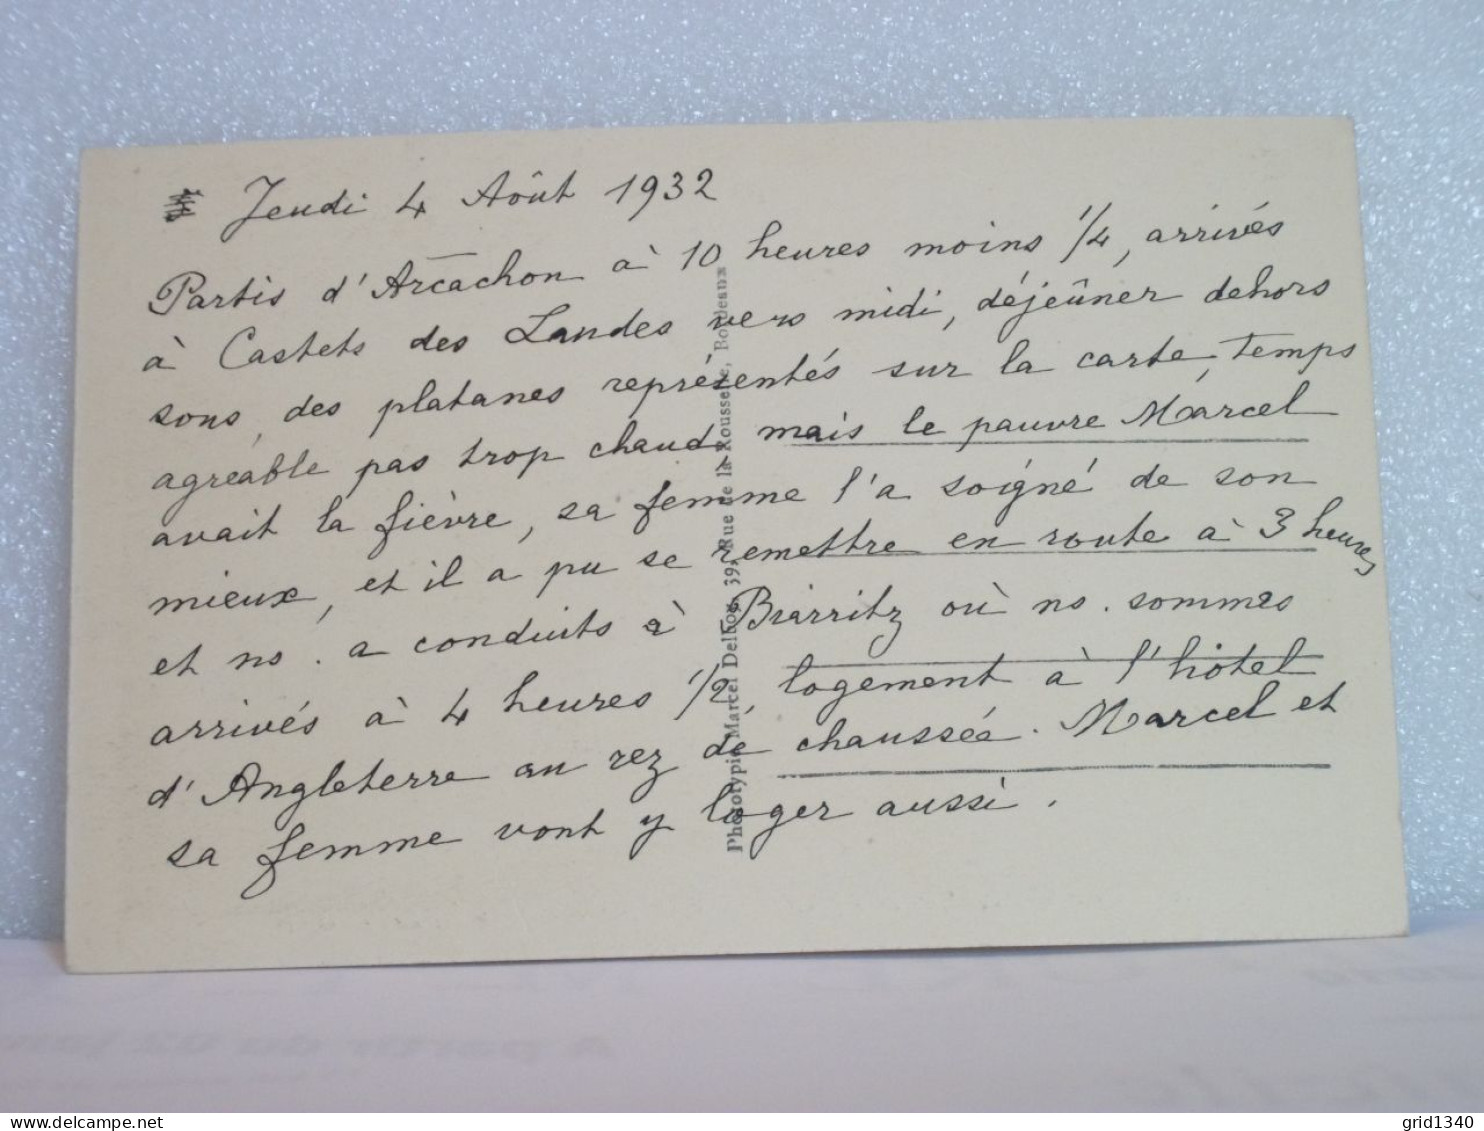 Jeudi 4 Août 1932
Partis d'Arcachon à 10 heures moins 1/4, arrivés
à Castets des Landes vers midi, déjeûner dehors
sous des platanes représentés sur la carte, temps
agréable pas trop chaud, mais le pauvre Marcel
avait la fièvre, sa femme l'a soigné de son
mieux, et il a pu se remettre en route à 3 heures
et ns. a conduits à Biarritz où ns. sommes
arrivés à 4 heures 1/2, logement à l'hôtel
d'Angleterre au rez de chaussée. Marcel et
sa femme vont y loger aussi.
Phototypie Marcel Delboy, 39, Rue de la Rousselle, Bordeaux
grid1340